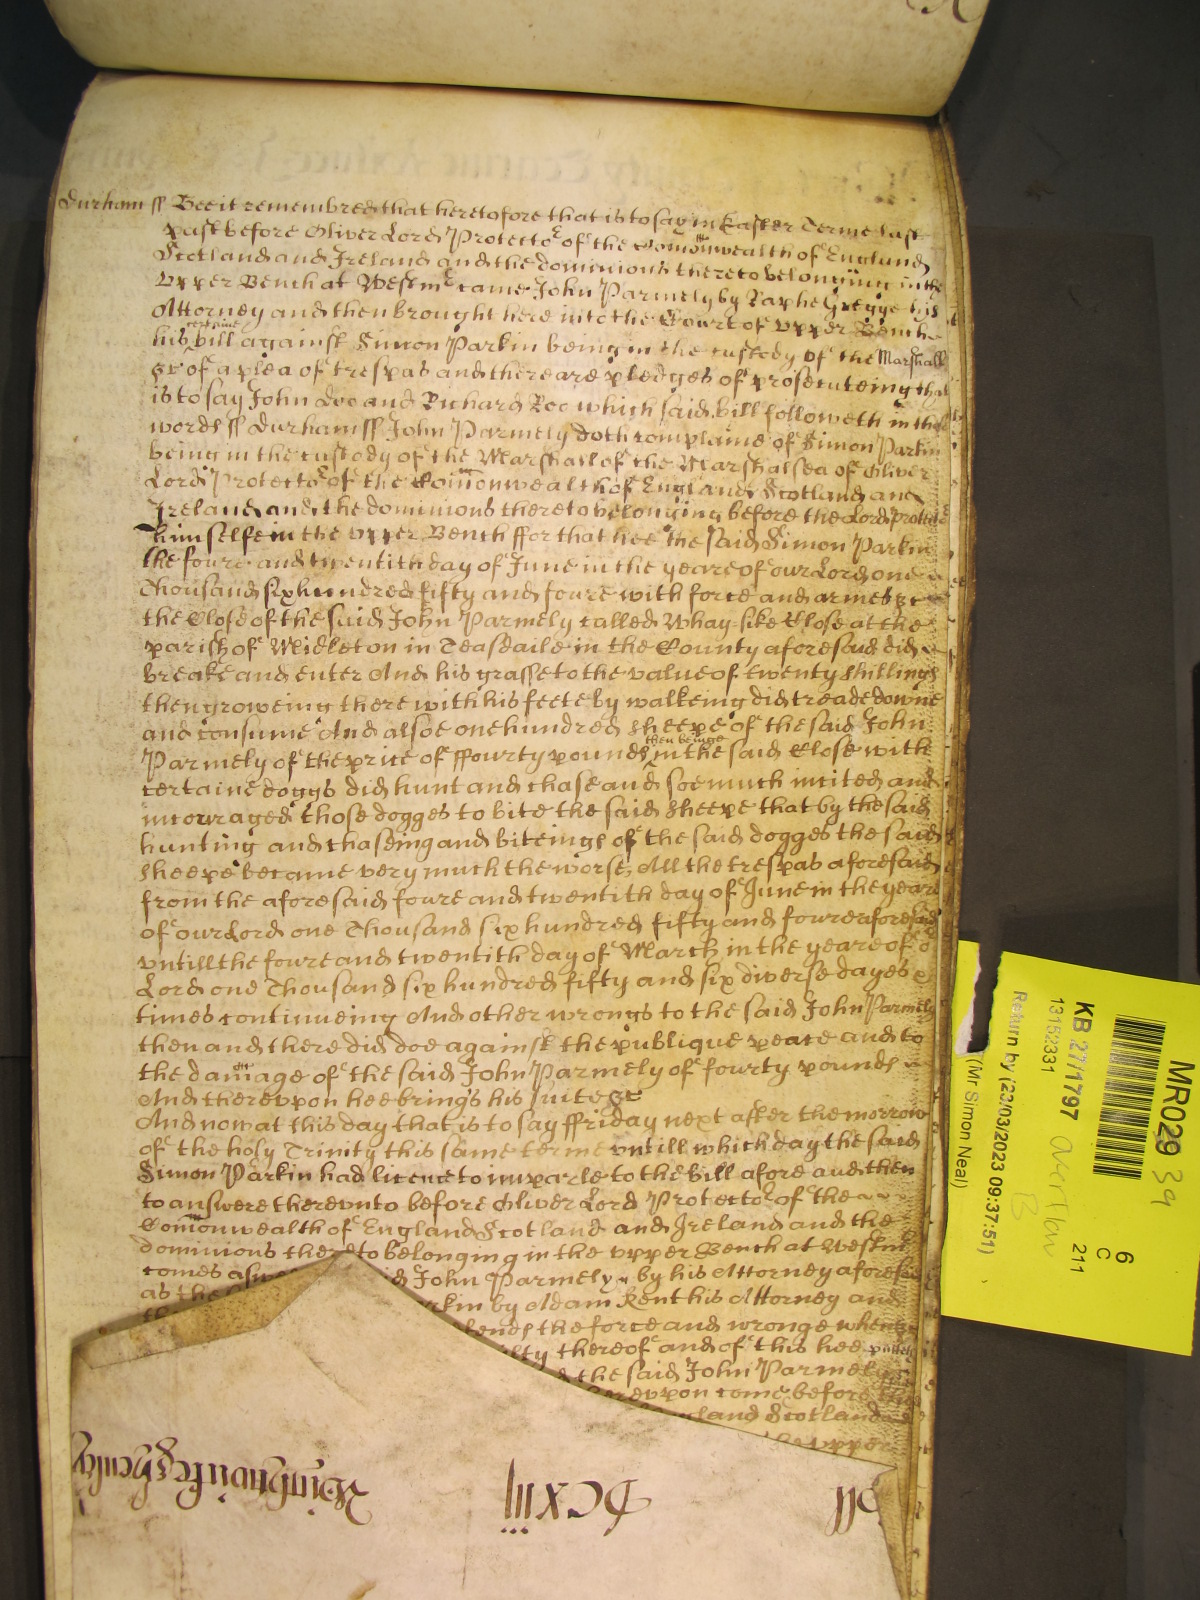 Durham ss Bee it remembred that heretofore that is to say in Easter Terme last
past before Oliver Lord Protector of the Comonwealth of England
Scotland and Ireland and the dominions thereto belonging in the
Upper Bench at Westmr came John Parmely by Raphe Gregge his
Attorney and then brought here into the Court of upper Bench
his certaine bill against Simon Parkin being in the custody of the Marshall
&c of a plea of trespas and there are pledges of prosecuteing that
is to say John Doe and Richard Roe which said bill followeth in these
words ss Durham ss John Parmely doth complaine of Simon Parkin
being in the custody of the Marshall of the Marshalsea of Oliver
Lord Protector of the Comonwealth of England Scotland and
Ireland and the dominions thereto belonging before the Lord Protector
himselfe in the upper Bench ffor that hee the said Simon Parkin
the foure and twentith day of June in the yeare of our Lord one
Thousand six hundred fifty and foure with force and armes &c
the Close of the said John Parmely called Whay-sike Close at the
parish of Midleton in Teasdaile in the County aforesaid did
breake and enter And his grasse to the value of twenty shillings
then groweing there with his feete by walkeing did treade downe
and consume And alsoe one hundred sheepe of the said John
Parmely of the price of ffourty pounds then being in the said Close with
certaine doggs did hunt and chase and soe much incited and
incouraged those dogges to bite the said sheepe that by the said
hunting and chaseing and biteings of the said dogges the said
sheepe became very much the worse, All the trespas aforesaid
from the aforesaid foure and twentith day of June in the yeare
of our Lord one Thousand six hundred fifty and foure aforesaid
untill the foure and twentith day of March in the yeare of
Lord one Thousand six hundred fifty and six diverse dayes &
times continueing And other wrongs to the said John Parmely
then and there did doe against the publique peace and to
the damage of the said John Parmely of fourty pounds
And thereupon hee brings his suite &c
And now at this day that is to say ffriday next after the morrow
of the holy Trinity this same terme untill which day the said
Simon Parkin had licence to imparle to the bill afore and then
to answere thereunto before Oliver Lord Protector of the
Comonwealth of England Scotland and Ireland and the
dominions thereto belonging in the upper Bench at Westmr
comes aswell John Parmely by his Attorney aforesaid
as the Parkin by Adam Kent his Attorney and
the force and wronge when
thereof and of this hee
the said John Parmely
come before
Scotland
the upper
DCxiij
MR029 39
6
C
211
KB 27/1797
13152331
Return by (23/03/2023 09:37:51)
(Mr Simon Neal)